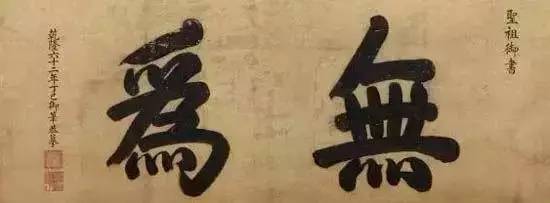 聖祖御書
無為
乾隆六十二年丁巳御筆恭摹